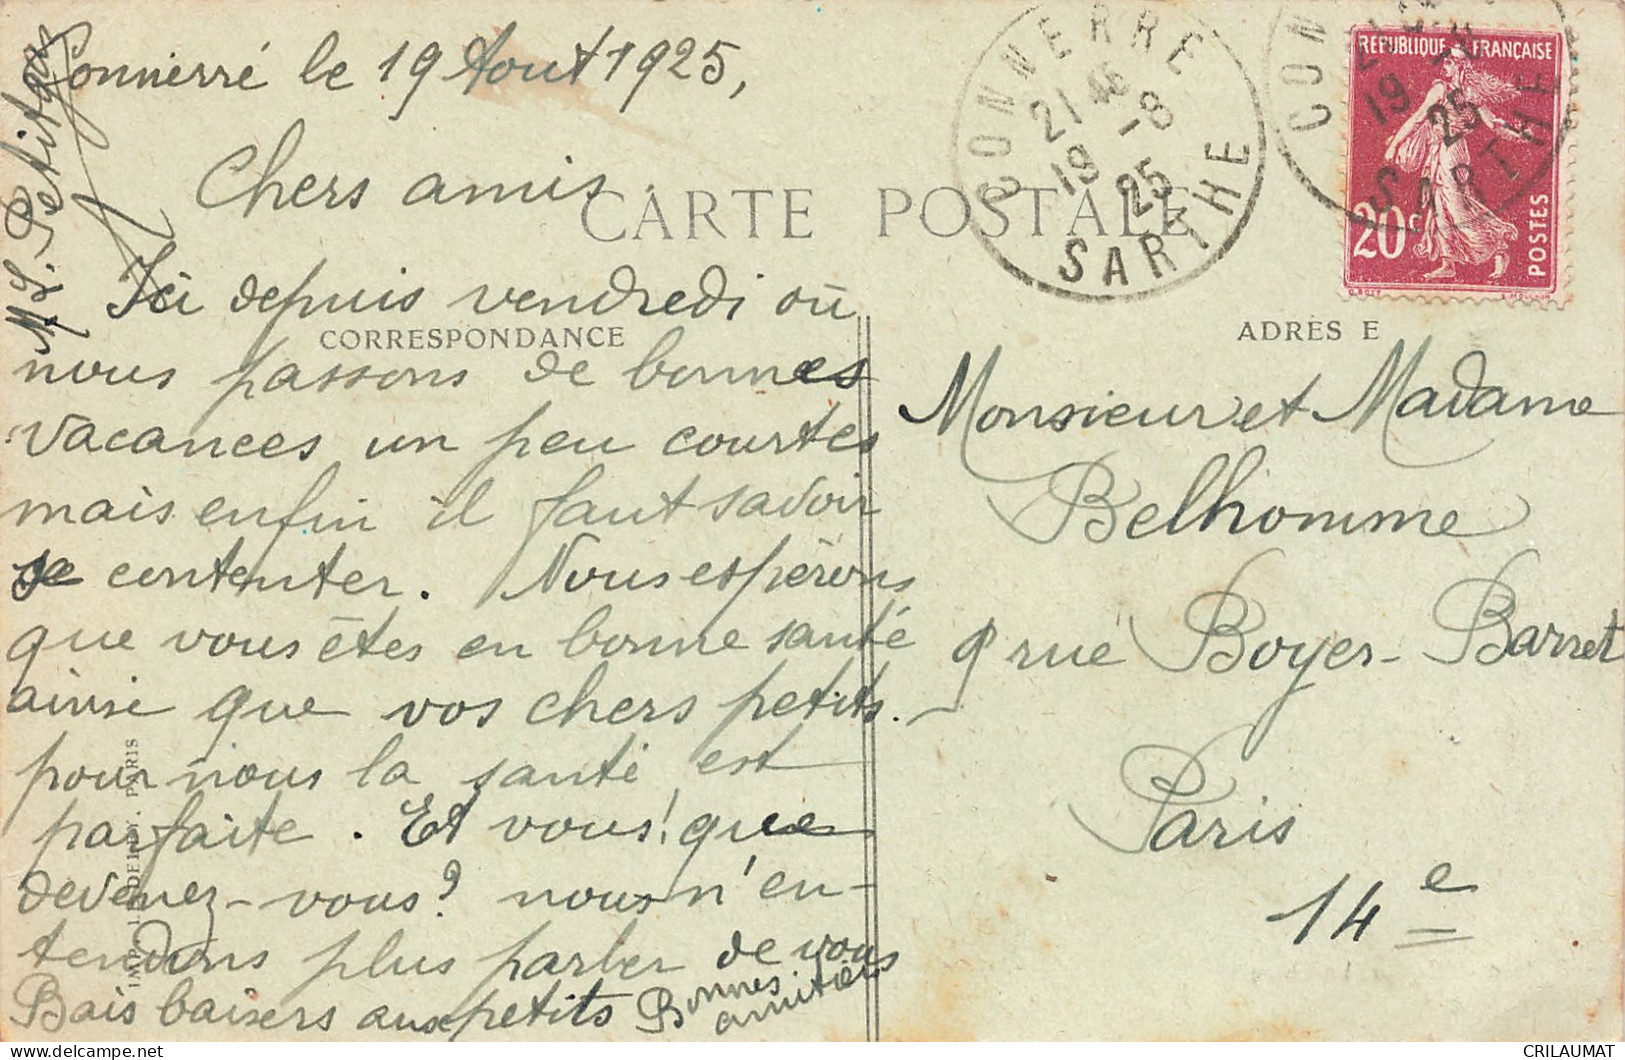 Connerré le 19 Aout 1925,
Chers amis.
CARTE POSTALE
Ici depuis vendredi où
CORRESPONDANCE
nous passons de bonnes
vacances un peu courtes
mais enfin il faut savoir
se contenter. Nous espérons
que vous êtes en bonne santé
ainsi que vos chers petits.
pour nous la santé est
parfaite. Et vous! que
devenez-vous? nous n'en-
tendons plus parler de vous
Bais baisers aux petits Bonnes
amitiés
CONNERRÉ
21 46
19 -8
25
SARTHE
CON
19 -8
25
SARTHE
REPUBLIQUE FRANÇAISE
20c
POSTES
ADRES E
Monsieur et Madame
Belhomme
9 rue Boyer-Barret
Paris
14e
PARIS
CRILAUMAT